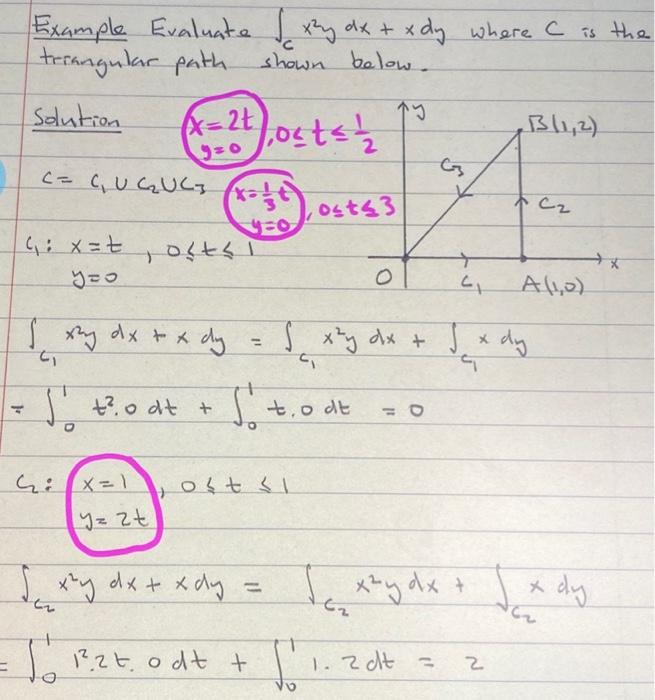 Example Evaluate ∫_C x²y dx + x dy where C is the
triangular path shown below.
Solution
x = 2t
y = 0
, 0 ≤ t ≤ 1/2
C = C₁ ∪ C₂ ∪ C₃
x = 1/3 t
y = 0
, 0 ≤ t ≤ 3
y
B(1,2)
C₃
C₂
x
O
C₁
A(1,0)
C₁: x = t , 0 ≤ t ≤ 1
y = 0
∫_C₁ x²y dx + x dy = ∫_C₁ x²y dx + ∫_C₁ x dy
= ∫₀¹ t².0 dt + ∫₀¹ t.0 dt = 0
C₂: x = 1 , 0 ≤ t ≤ 1
y = 2t
∫_C₂ x²y dx + x dy = ∫_C₂ x²y dx + ∫_C₂ x dy
= ∫₀¹ 1².2t.0 dt + ∫₀¹ 1.2 dt = 2